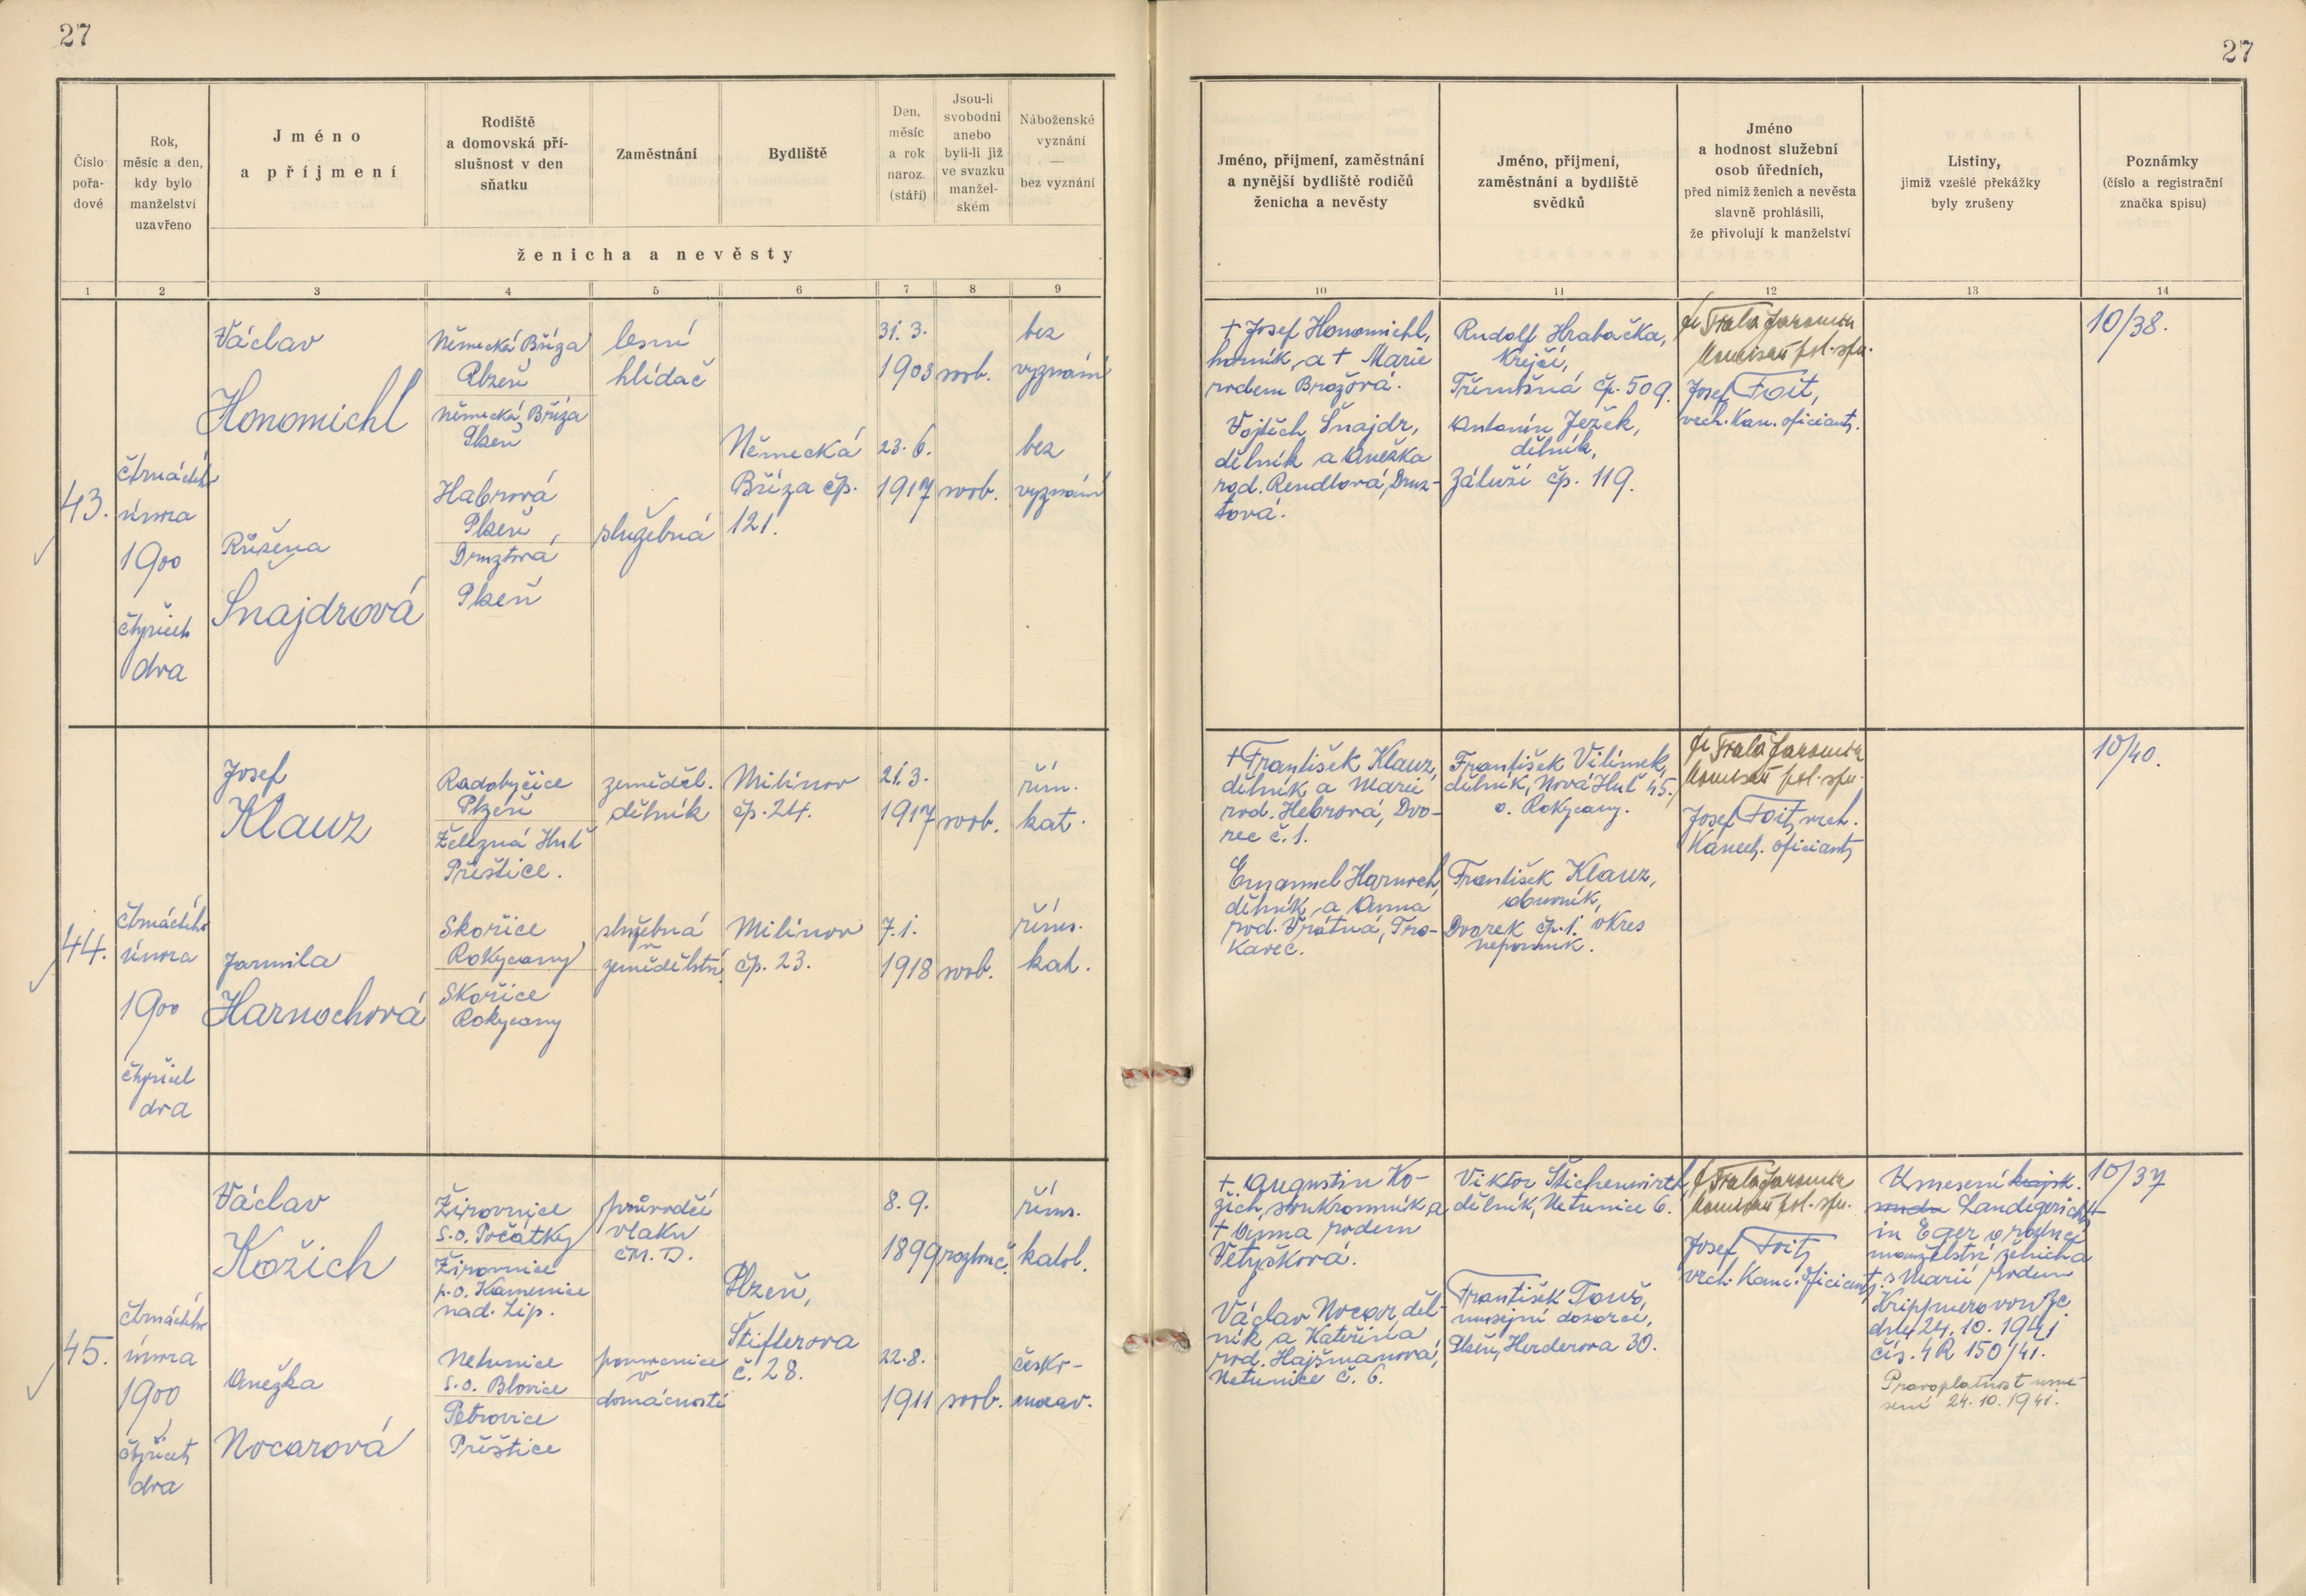 27
27
Číslo
pořa-
dové
Rok,
měsíc a den,
kdy bylo
manželství
uzavřeno
Jméno
a příjmení
Rodiště
a domovská pří-
slušnost v den
sňatku
Zaměstnání
Bydliště
Den,
měsíc
a rok
naroz.
(stáří)
Jsou-li
svobodni
anebo
byli-li již
ve svazku
manžel-
ském
Náboženské
vyznání
—
bez vyznání
ženicha a nevěsty
Jméno, příjmení, zaměstnání
a nynější bydliště rodičů
ženicha a nevěsty
Jméno, příjmení,
zaměstnání a bydliště
svědků
Jméno
a hodnost služební
osob úředních,
před nimiž ženich a nevěsta
slavně prohlásili,
že přivolují k manželství
Listiny,
jimiž vzešlé překážky
byly zrušeny
Poznámky
(číslo a registrační
značka spisu)
1 2 3 4 5 6 7 8 9 10 11 12 13 14
43.
čtrnáctého
února
1900
čtyřicet
dva
Václav
Honomichl
Německá Bříza
Plzeň
Německá Bříza
Plzeň
lesní
hlídač
31. 3.
1903
svob.
bez
vyznání
Růžena
Šnajdrová
Habrová
Plzeň
Druztová
Plzeň
služebná
Německá
Bříza čp.
121.
23. 6.
1917
svob.
bez
vyznání
† Josef Honomichl,
horník, a † Marie
rodem Brožová.
Vojtěch Šnajdr,
dělník a Anežka
rod. Rendlová, Druz-
tová.
Rudolf Hrabačka,
Krejčí,
Třemošná čp. 509.
Antonín Ježek,
dělník,
Záluží čp. 119.
Jaromír
Komisař pol. sprá.
Josef Foit,
vrch. Kan. oficiant.
10/38.
44.
čtrnáctého
února
1900
čtyřicet
dva
Josef
Klauz
Radobyčice
Plzeň
Železná Huť
Přeštice.
zeměděl.
dělník
Milínov
čp. 24.
21. 3.
1917
svob.
řím.
kat.
Jarmila
Harnochová
Skořice
Rokycany
Skořice
Rokycany
služebná
v
zemědělství
Milínov
čp. 23.
7. 1.
1918
svob.
říms.
kat.
† František Klauz,
dělník a Marie
rod. Hebrová, Dvo-
rec č. 1.
Emanuel Harnoch,
dělník, a Anna
rod. Vrátná, Tro-
kavec.
František Vilímek,
dělník, Nová Huť 45.
o. Rokycany.
František Klauz,
obuvník,
Dvorek čp. 1. okres
Nepomuk.
Jaromír
Komisař pol. sprá.
Josef Foit, vrch.
Kancel. oficiant
10/40.
45.
čtrnáctého
února
1900
čtyřicet
dva
Václav
Kožich
Žirovnice
s. o. Počátky
Žirovnice
p. o. Kamenice
nad. Lip.
průvodčí
vlaku
ČM. D.
8. 9.
1899
rozluč.
říms.
katol.
Anežka
Nocarová
Netunice
s. o. Blovice
Petrovice
Přeštice
pomocnice
v
domácnosti
Plzeň,
Štiflerova
č. 28.
22. 8.
1911
svob.
česko-
morav.
† Augustin Ko-
žich, soukromník a
† Anna rodem
Vetyšková.
Václav Nocar, děl-
ník a Kateřina
rod. Hajšmanová,
Netunice č. 6.
Viktor Štichenwirth,
dělník, Netunice 6.
František Touš,
musejní dozorce,
Plzeň, Herderova 30.
Jaromír
Komisař pol. sprá.
Josef Foit,
vrch. Kanc. oficiant.
Usnesení krajsk.
soudu Landgericht
in Eger o rozluce
manželství ženicha
s Marií rodem
dne 24. 10. 1941
čís. 4 R 150/41.
Pravoplatnost usne-
sení 24. 10. 1941.
10/37